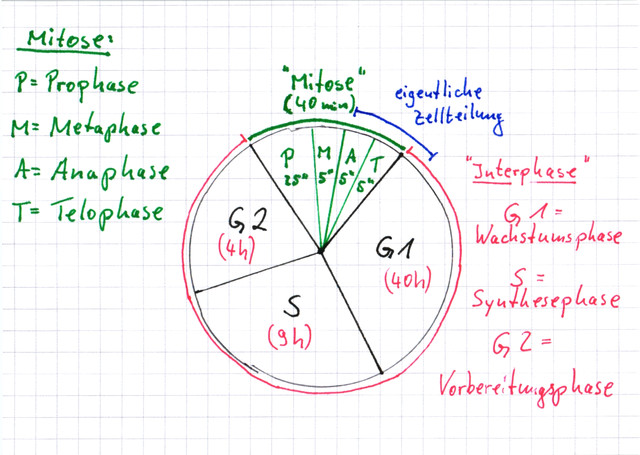 Mitose:
P= Prophase
M= Metaphase
A= Anaphase
T= Telophase
"Mitose"
(40 min)
eigentliche
Zellteilung
P
25"
M
5"
A
5"
T
5"
G2
(4h)
G1
(40h)
S
(9h)
"Interphase"
G1=
Wachstumsphase
S =
Synthesephase
G2 =
Vorbereitungsphase